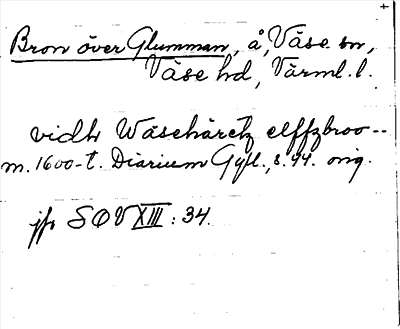 Bron över Glumman, å, Väse sn,
Väse hd, Värml. l.
vidh Wäsehäretz elffzbroo --
m. 1600-t. Diarium Gyll., s. 44. orig.
jfr SOV XIII: 34.